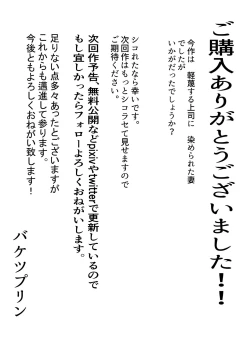 ご購入ありがとうございました!!
今作は 軽蔑する上司に 染められた妻
でしたが
いかがだったでしょうか?
シコれたなら幸いです。
次回作はもっとシコラセて見せますので
ご期待ください。
次回作予告、無料公開などpixivやtwitterで更新しているので
もし宜しかったらフォローよろしくおねがいします。
足りない点多々あったとございますが
これからも邁進して参ります。
今後ともよろしくおねがい致します!
バケツプリン